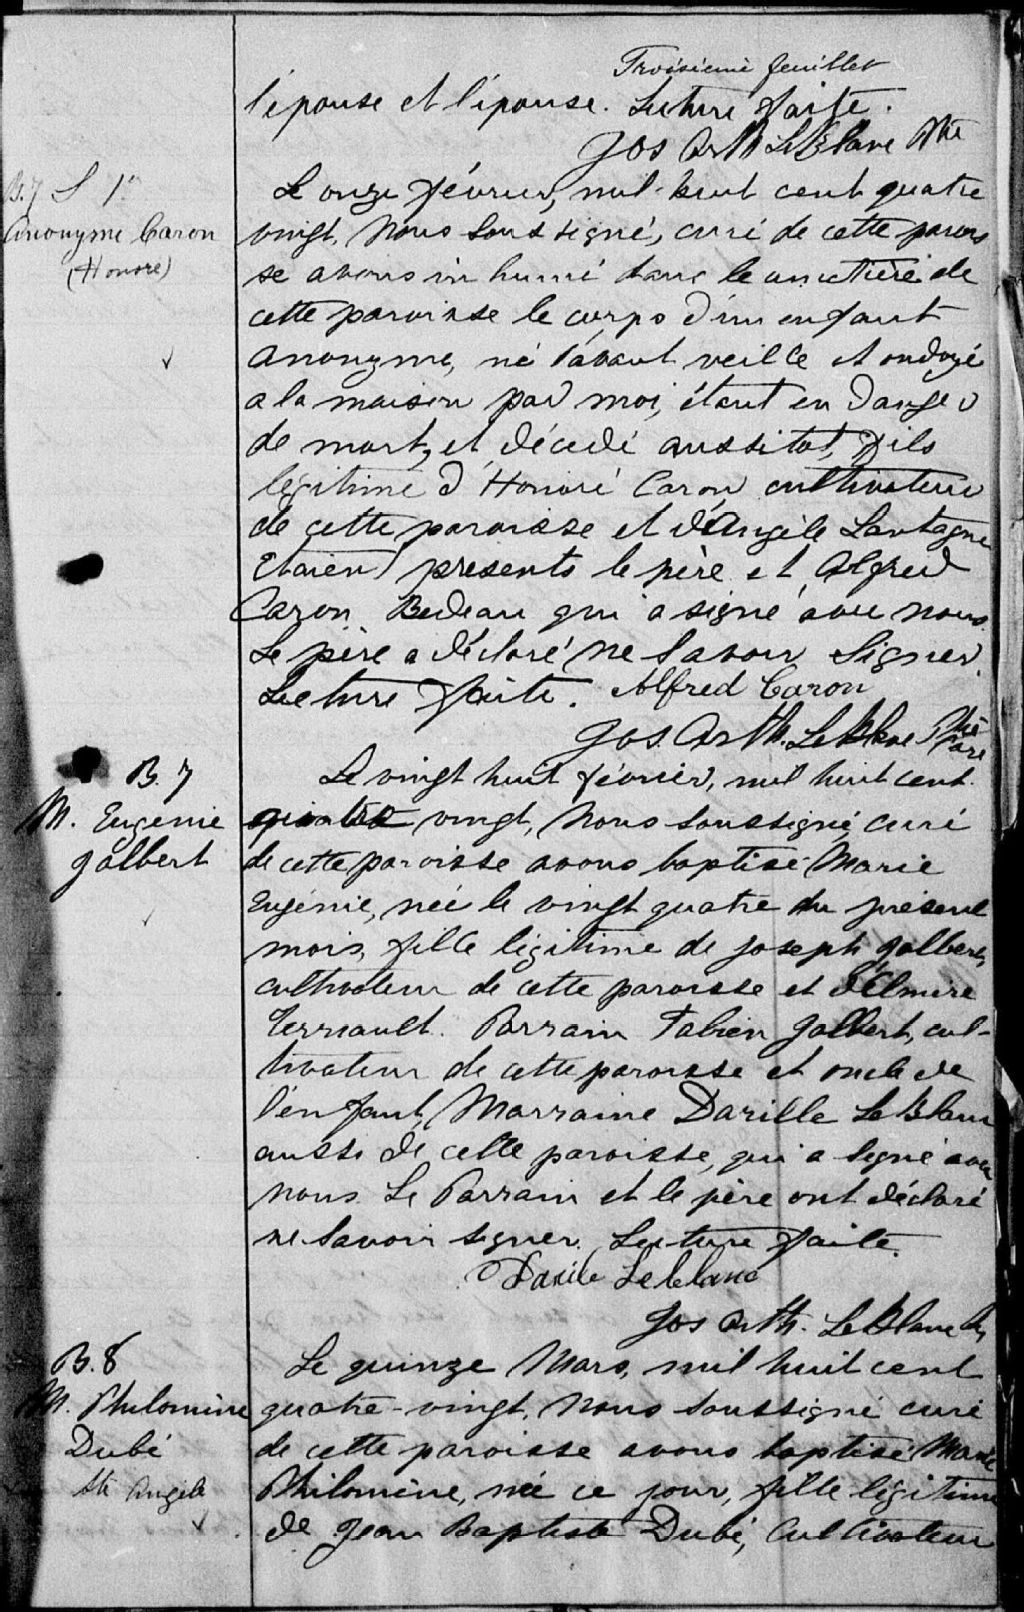 Troisième feuillet
l'épouse et l'épouse. Lecture faite.
Jos Arth LeBlanc Ptre
B.7 S 1er
Anonyme Caron
(Honoré)
Le onze février, mil-huit cent quatre
vingt, Nous soussigné, curé de cette parois
se avons inhumé dans le cimetière de
cette paroisse le corps d'un enfant
anonyme, né l'avant veille et ondoyé
a la maison par moi, étant en danger
de mort, et décédé aussitot, fils
légitime d'Honoré Caron cultivateur
de cette paroisse et d'Angèle Lantagne
Etaient présents le père et Alfred
Caron Bedeau qui a signé avec nous.
Le père a déclaré ne savoir signer.
Lecture faite. Alfred Caron
Jos. Arth. LeBlanc Ptre
Curé
B. 7
M. Eugénie
Galbert
Le vingt huit février, mil huit cent
quatre vingt, Nous soussigné, curé
de cette paroisse avons baptisé Marie
Eugénie, née le vingt quatre du présent
mois, fille légitime de Joseph Galbert,
cultivateur de cette paroisse et d'Elmire
Terriault. Parrain Fabien Galbert, cul-
tivateur de cette paroisse et oncle de
l'enfant, Marraine Darille LeBlanc
aussi de cette paroisse, qui a signé avec
nous. Le Parrain et le père ont déclaré
ne savoir signer. Lecture faite.
Leblanc
Jos Arth. LeBlanc Ptre
B.8
M. Philomène
Dubé
Ste Angèle
Le quinze Mars, mil huit cent
quatre-vingt, Nous soussigné curé
de cette paroisse avons baptisé Marie
Philomène, née ce jour, fille légitime
de Jean Baptiste Dubé, Cultivateur